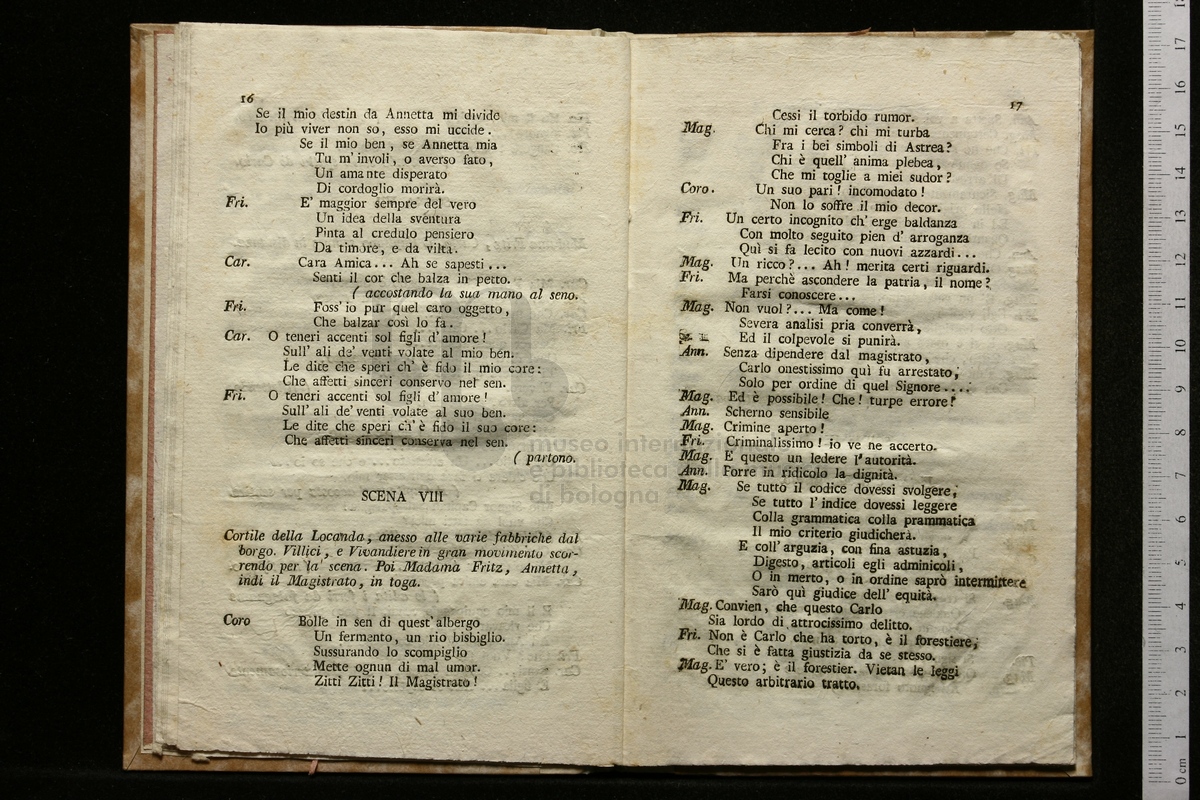 16
Se il mio destin da Annetta mi divide
Io più viver non so, esso mi uccide.
Se il mio ben, se Annetta mia
Tu m'involi, o averso fato,
Un amante disperato
Di cordoglio morirà.
Fri. E' maggior sempre del vero
Un idea della sventura
Pinta al credulo pensiero
Da timore, e da viltà.
Car. Cara Amica... Ah se sapesti...
Senti il cor che balza in petto.
( accostando la sua mano al seno.
Fri. Foss'io pur quel caro oggetto,
Che balzar così lo fa.
Car. O teneri accenti sol figli d'amore!
Sull' ali de' venti volate al mio ben.
Le dite che speri ch' è fido il mio core:
Che affetti sinceri conservo nel sen.
Fri. O teneri accenti sol figli d'amore!
Sull' ali de' venti volate al suo ben.
Le dite che speri ch' è fido il suo core:
Che affetti sinceri conserva nel sen.
( partono.
SCENA VIII
Cortile della Locanda, anesso alle varie fabbriche dal
borgo. Villici, e Vivandiere in gran movimento scor-
rendo per la scena. Poi Madama Fritz, Annetta,
indi il Magistrato, in toga.
Coro Bolle in sen di quest' albergo
Un fermento, un rio bisbiglio.
Sussurando lo scompiglio
Mette ognun di mal umor.
Zitti Zitti! Il Magistrato!
17
Cessi il torbido rumor.
Mag. Chi mi cerca? chi mi turba
Fra i bei simboli di Astrea?
Chi è quell' anima plebea,
Che mi toglie a miei sudor?
Coro. Un suo pari! incomodato!
Non lo soffre il mio decor.
Fri. Un certo incognito ch' erge baldanza
Con molto seguito pien d' arroganza
Quì si fa lecito con nuovi azzardi...
Mag. Un ricco?... Ah! merita certi riguardi.
Fri. Ma perchè ascondere la patria, il nome?
Farsi conoscere...
Mag. Non vuol?... Ma come!
Severa analisi pria converrà,
Ed il colpevole si punirà.
Ann. Senza dipendere dal magistrato,
Carlo onestissimo quì fu arrestato,
Solo per ordine di quel Signore....
Mag. Ed è possibile! Che! turpe errore!
Ann. Scherno sensibile
Mag. Crimine aperto!
Fri. Criminalissimo! io ve ne accerto.
Mag. E questo un ledere l'autorità.
Ann. Porre in ridicolo la dignità.
Mag. Se tutto il codice dovessi svolgere,
Se tutto l'indice dovessi leggere
Colla grammatica colla prammatica
Il mio criterio giudicherà.
E coll' arguzia, con fina astuzia,
Digesto, articoli egli adminicoli,
O in merto, o in ordine saprò intermittere
Sarò quì giudice dell' equità.
Mag. Convien, che questo Carlo
Sia lordo di attrocissimo delitto.
Fri. Non è Carlo che ha torto, è il forestiere,
Che si è fatta giustizia da se stesso.
Mag. E' vero; è il forestier. Vietan le leggi
Questo arbitrario tratto.
museo internazi
e biblioteca
di bologna